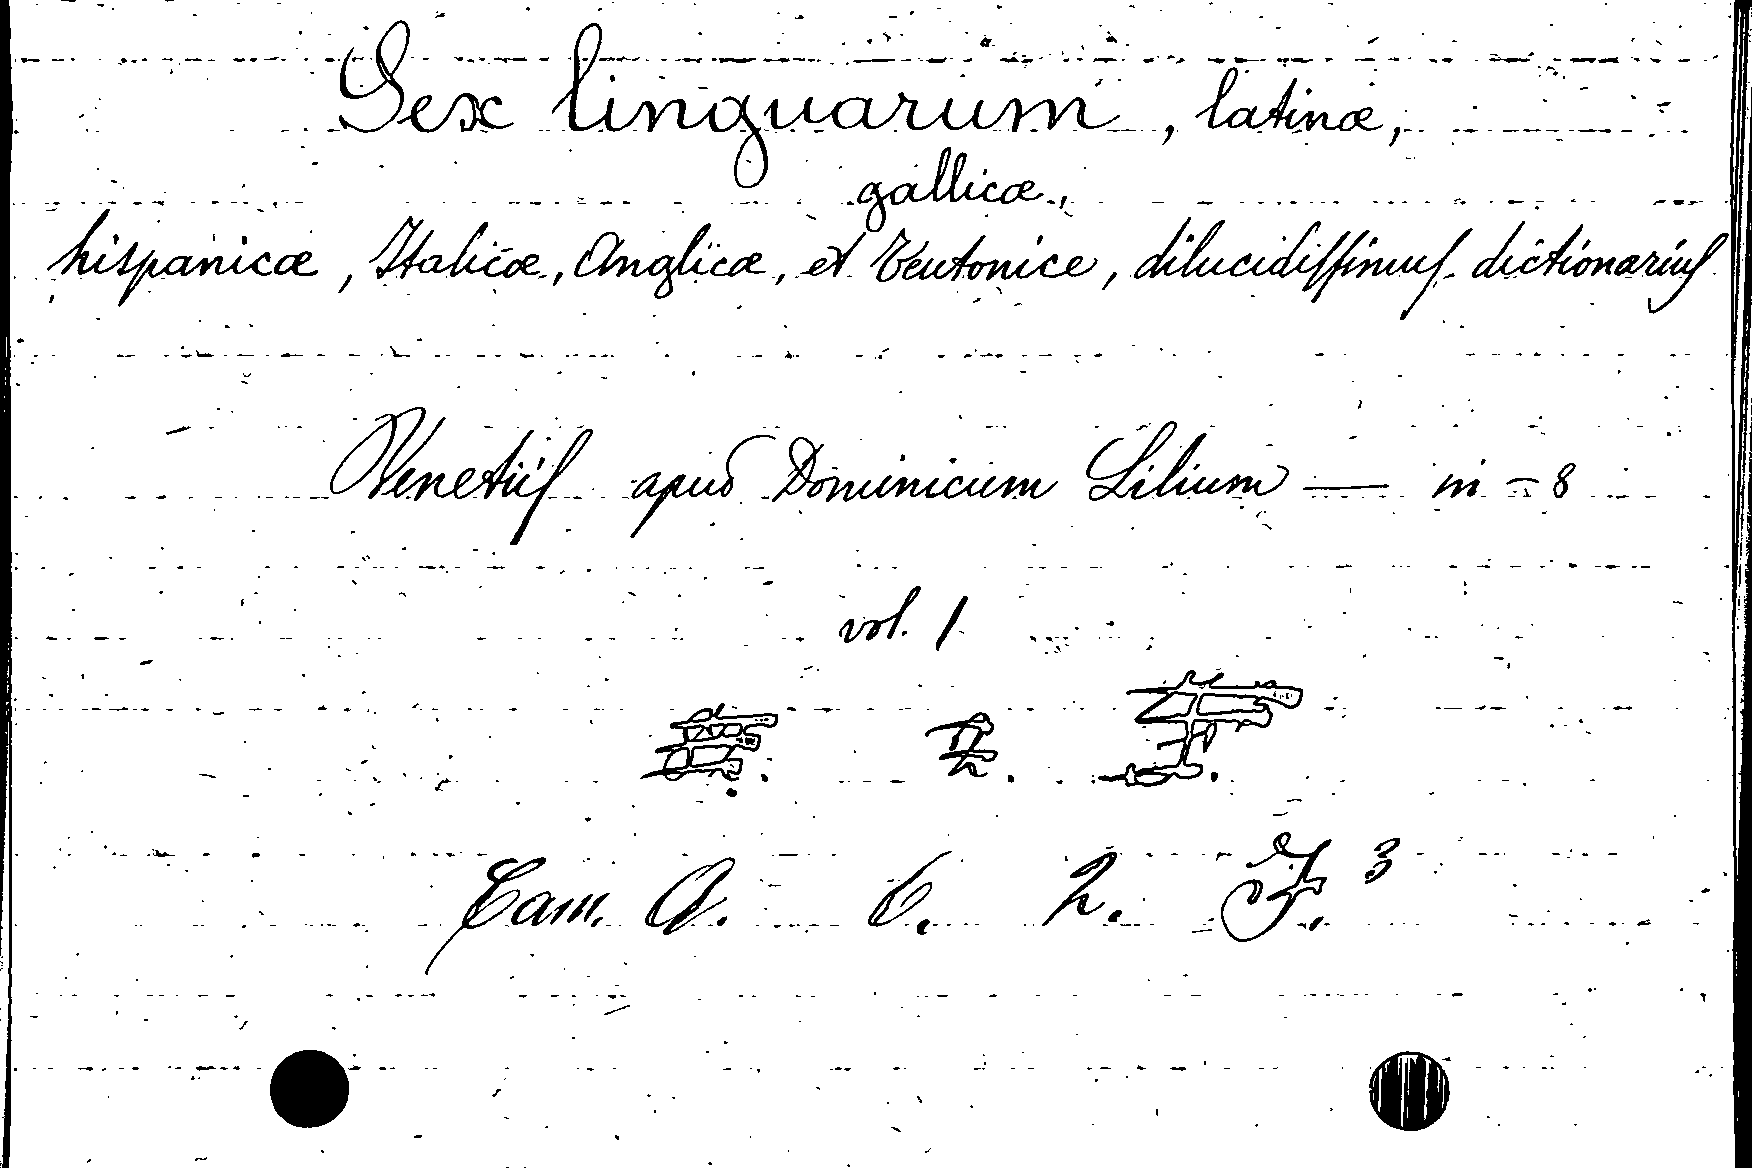 Sex linguarum, latinæ,
gallicæ,
hispanicæ, Italicæ, Anglicæ, et Teutonice, dilucidissimus dictionarius
Venetiis apud Dominicum Lilium — in-8
vol. 1
Cam. A. 6. 2. F. 3